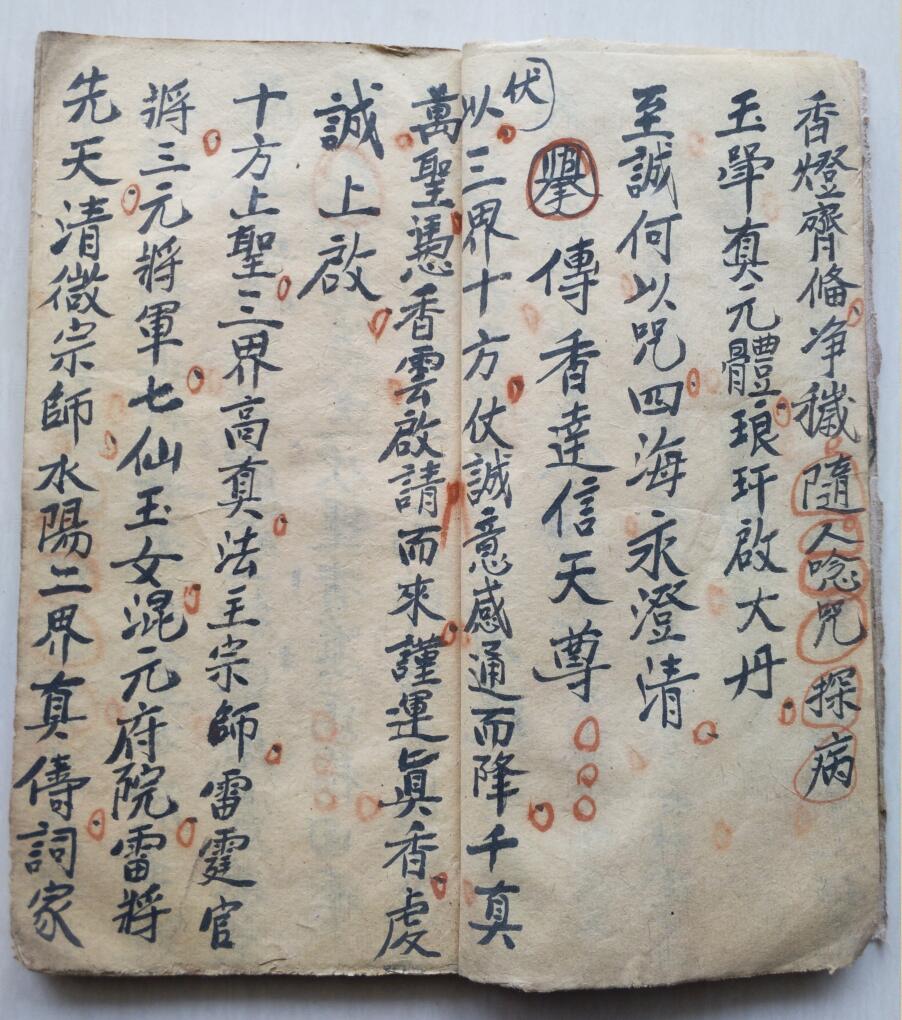 香燈齊俻净穢隨人唸咒探病
玉犟真元體琅玕啟大丹
至誠何以咒四海永澄清
舉傳香達信天尊
伏以三界十方仗誠意感通而降千真
萬聖憑香雲啟請而來謹運真香虔
誠上啟
十方上聖三界高真法主宗師雷霆官
將三元將軍七仙玉女混元府院雷將
先天清微宗師水陽二界真儔詞家